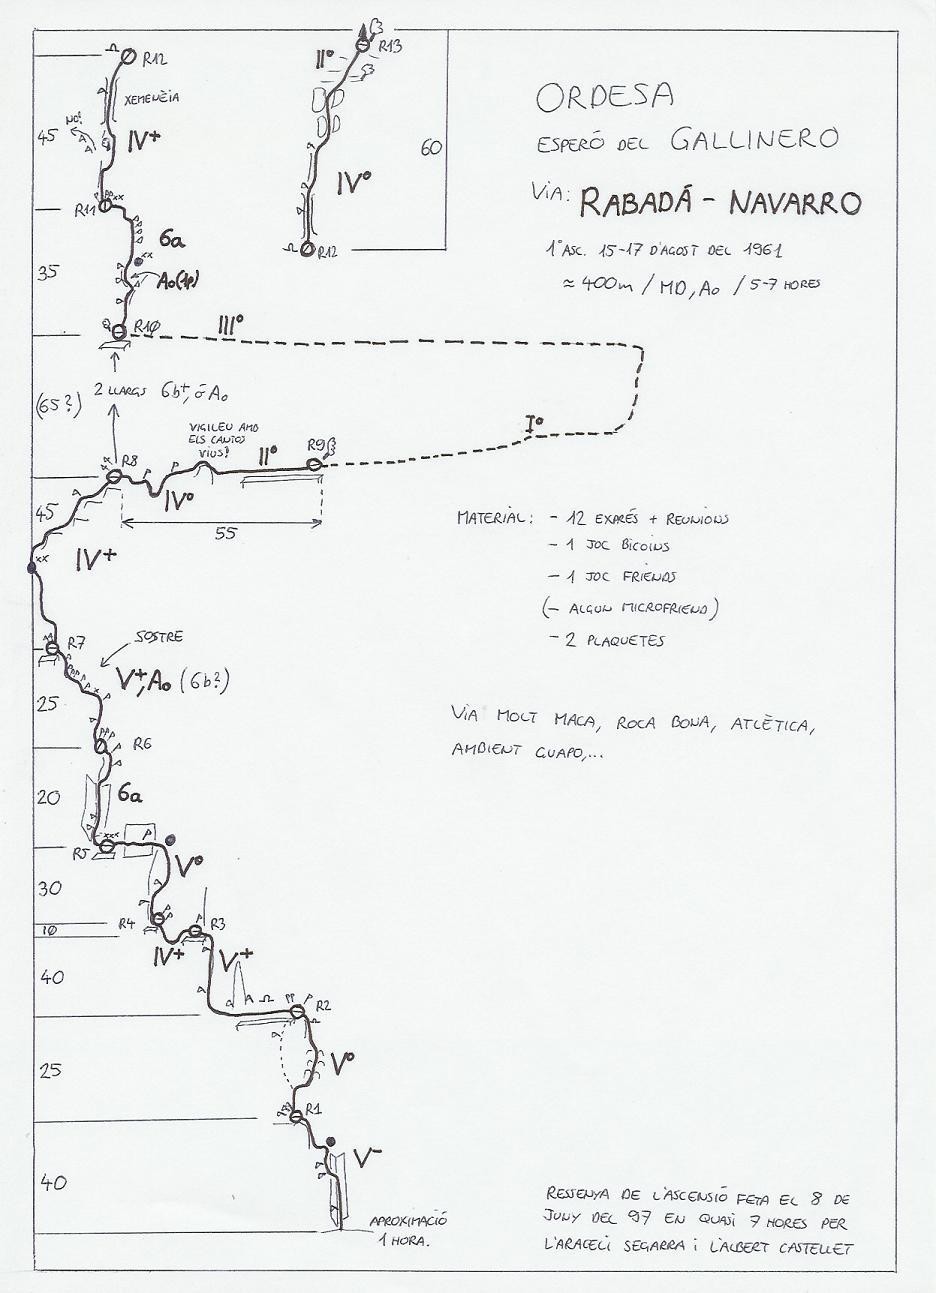 R12
XEMENEIA
NO!
45
IV+
R11
6a
35
A0(1p)
R10
III°
II°
R13
60
IV°
R12
ORDESA
ESPERÓ DEL GALLINERO
VIA: RABADÁ - NAVARRO
1ª ASC. 15-17 D'AGOST DEL 1961
≈ 400m / MD, A0 / 5-7 HORES
(65?)
2 LLARGS 6b+, ó A0
I°
VIGILEU AMB
ELS CANTOS
VIUS!
R8
P
P
II°
R9
IV°
45
55
IV+
MATERIAL: - 12 EXPRÉS + REUNIONS
- 1 JOC BICOINS
- 1 JOC FRIENDS
(- ALGUN MICROFRIEND)
- 2 PLAQUETES
R7
SOSTRE
V+, A0 (6b?)
25
R6
VIA MOLT MACA, ROCA BONA, ATLÈTICA,
AMBIENT GUAPO,...
20
6a
R5
P
V°
30
R4
R3
10
IV+
V+
40
R2
25
V°
R1
V-
40
APROXIMACIÓ
1 HORA.
RESSENYA DE L'ASCENSIÓ FETA EL 8 DE
JUNY DEL 97 EN QUASI 7 HORES PER
L'ARACELI SEGARRA i L'ALBERT CASTELLET